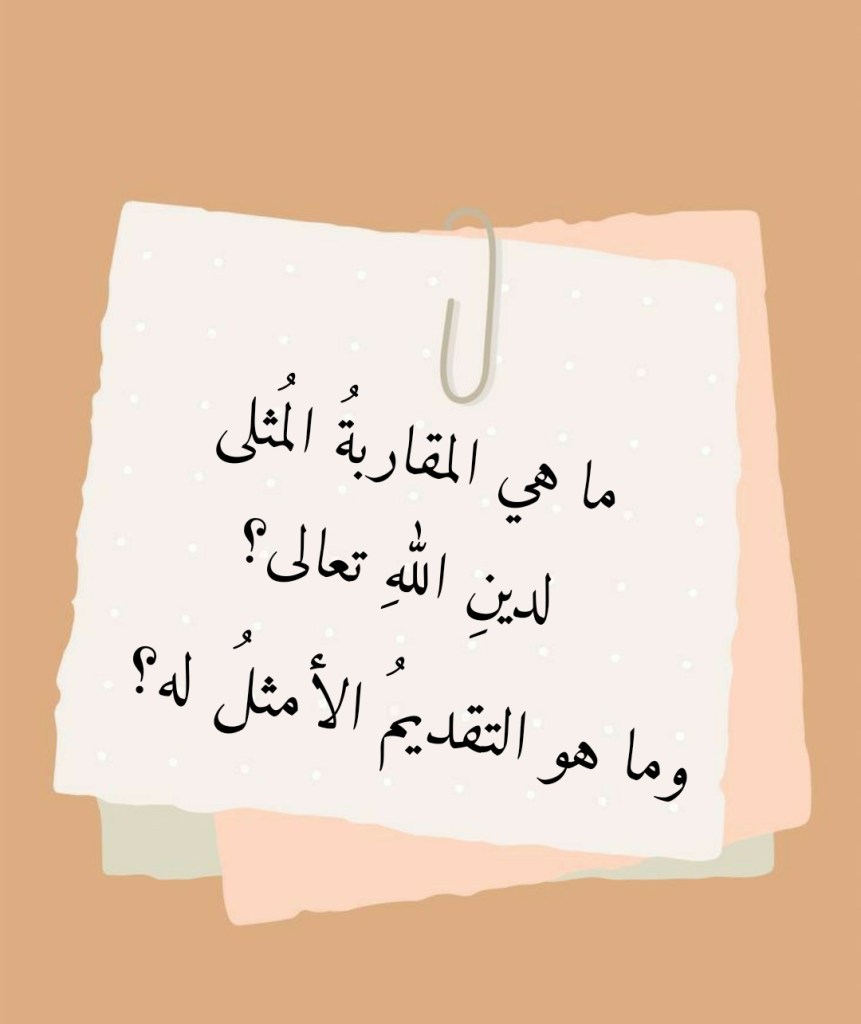 ما هي المقاربةُ المُثلى
لدينِ اللهِ تعالى؟
وما هو التقديمُ الأمثلُ له؟